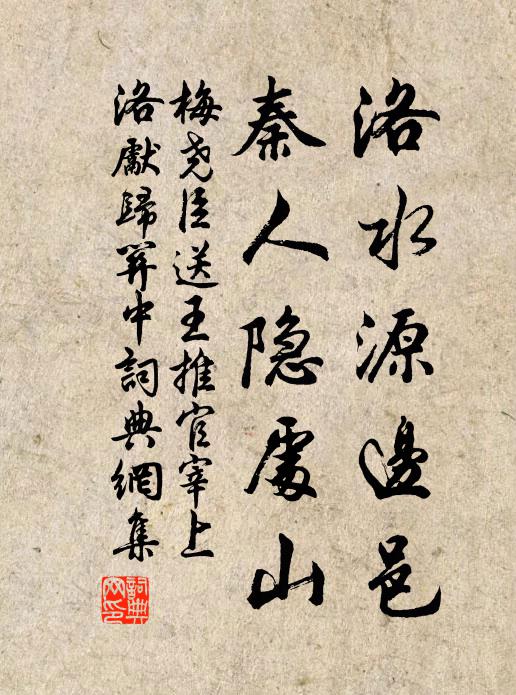 洛水源邊邑
秦人隐處山
梅尧臣送王推官宰上
洛獻歸關中詞典網集
詞典網印